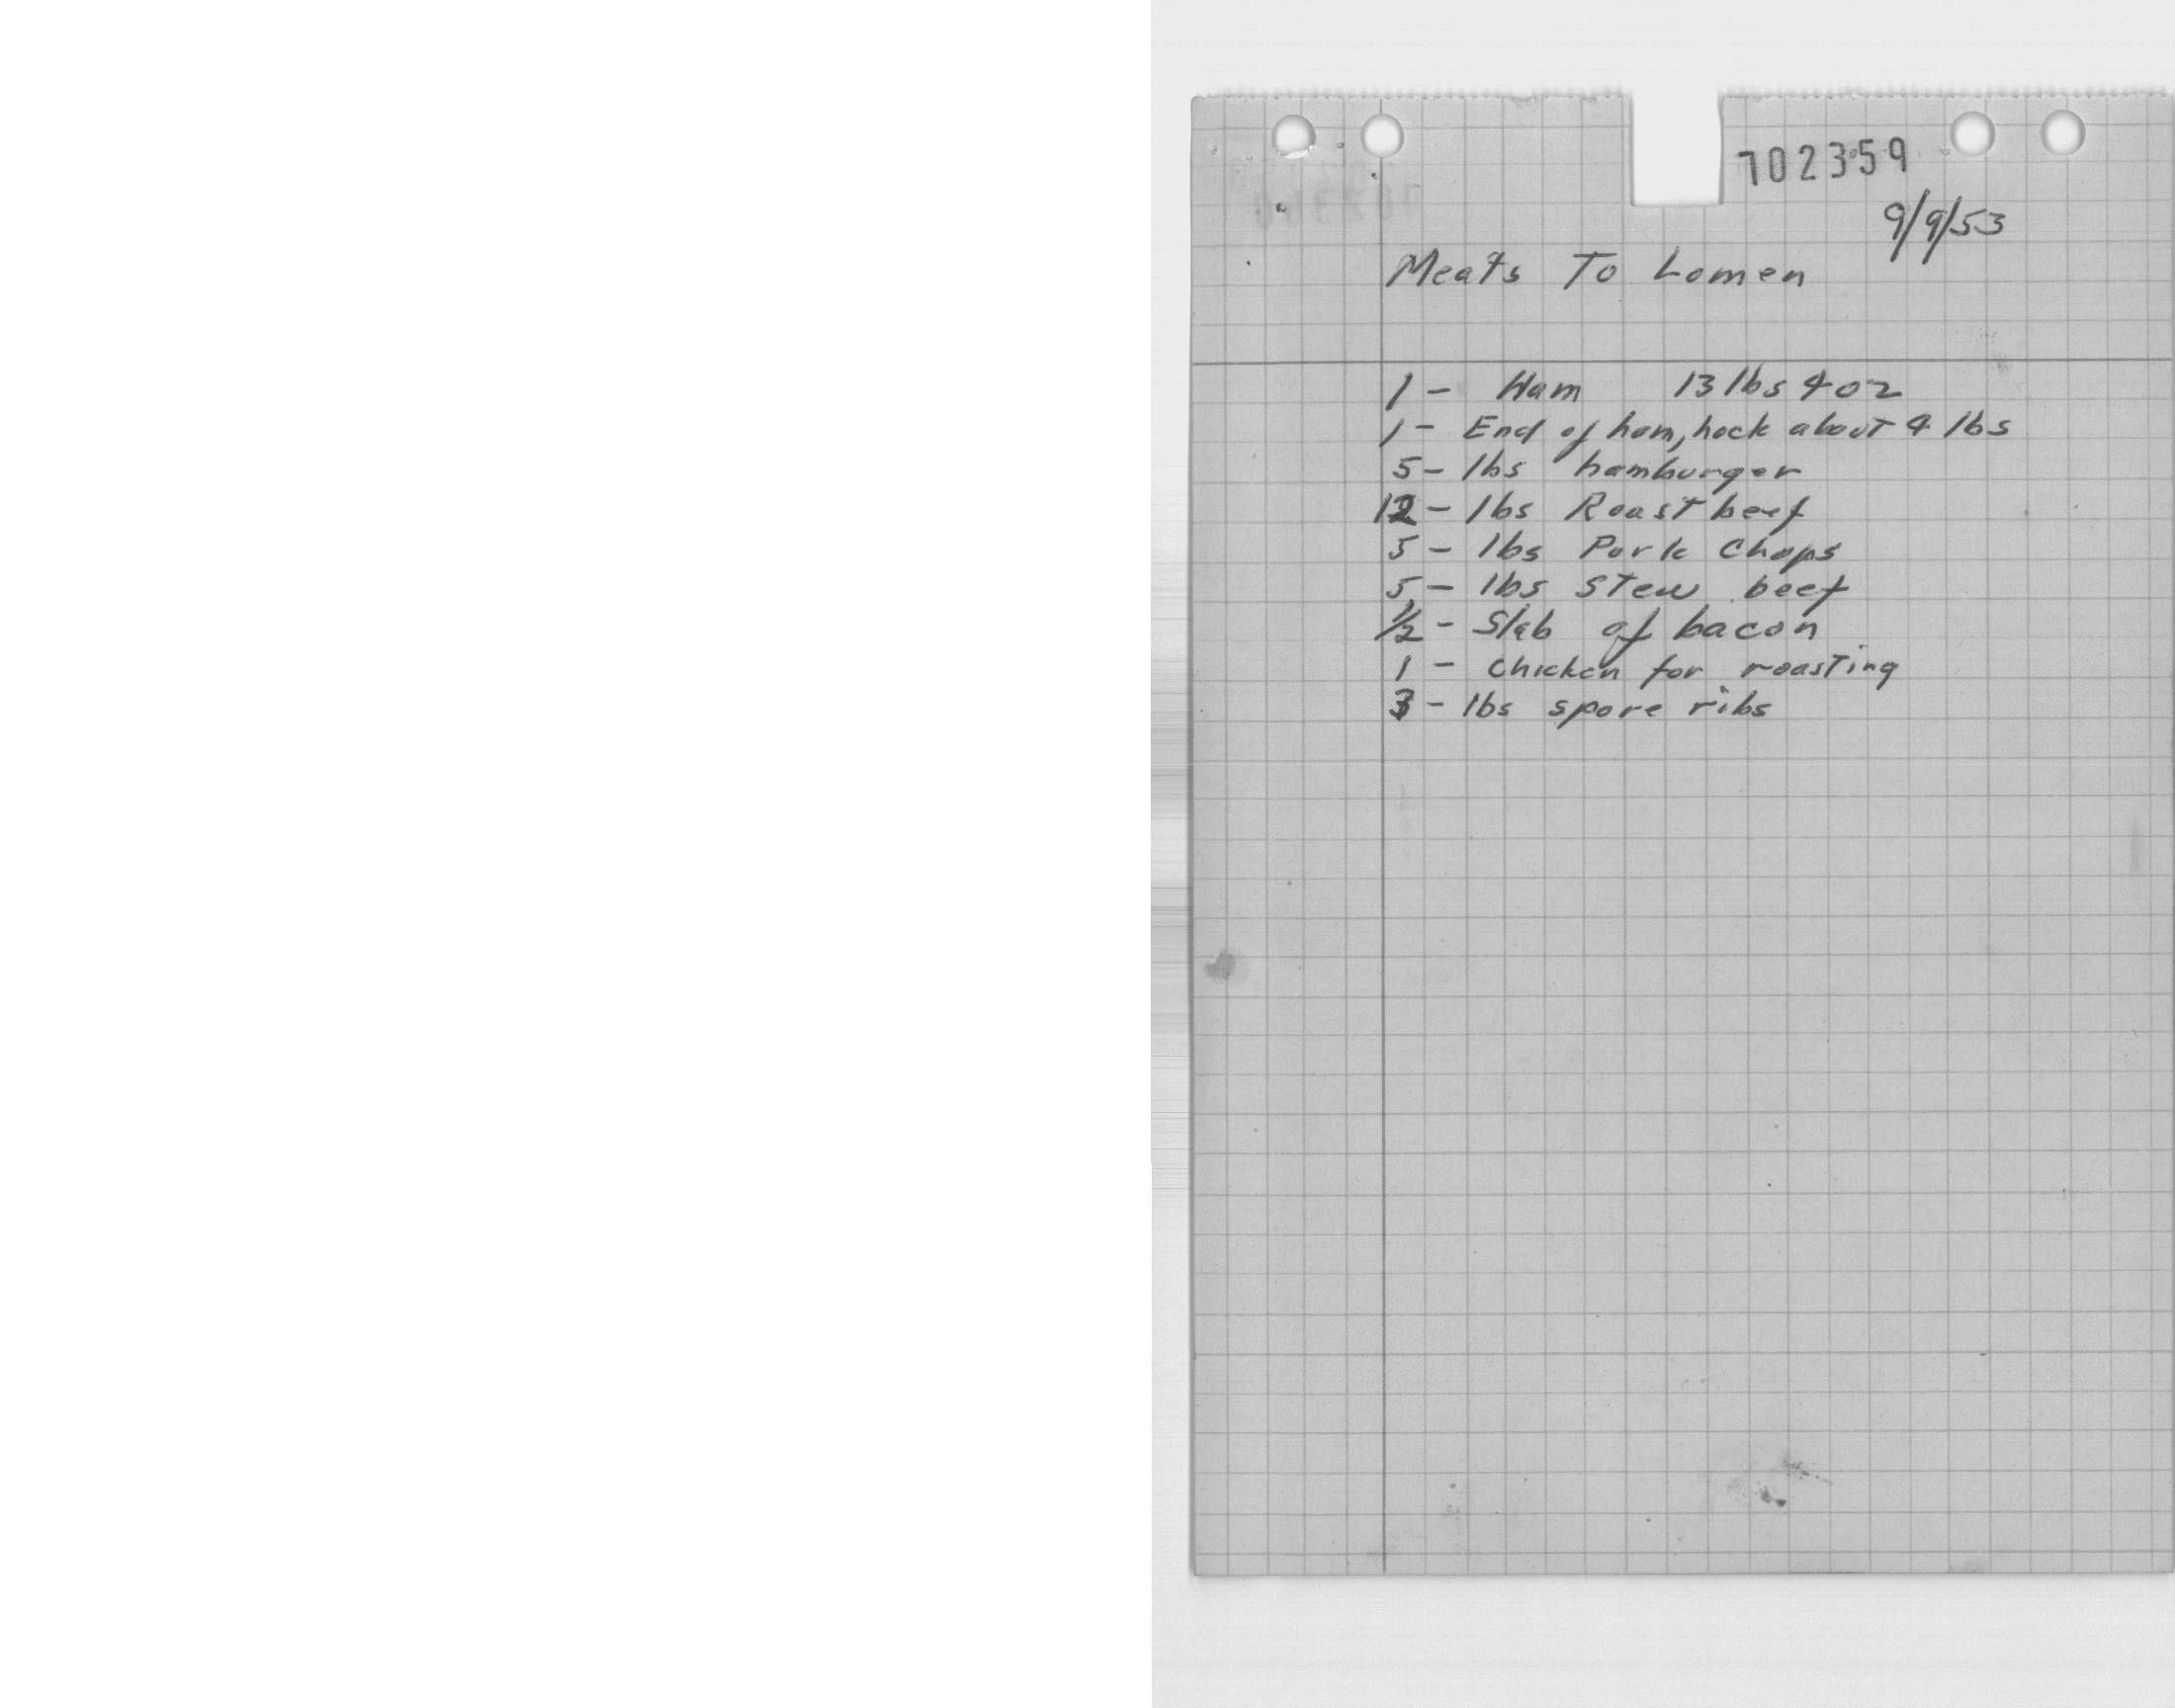 702359
9/9/53
Meats To Lomen
1 - Ham 13 lbs 4 oz
1 - End of ham, hock about 4 lbs
5 - lbs hamburger
12 - lbs Roast beef
5 - lbs Pork Chops
5 - lbs Stew beef
1/2 - Slab of bacon
1 - Chicken for roasting
3 - lbs spare ribs